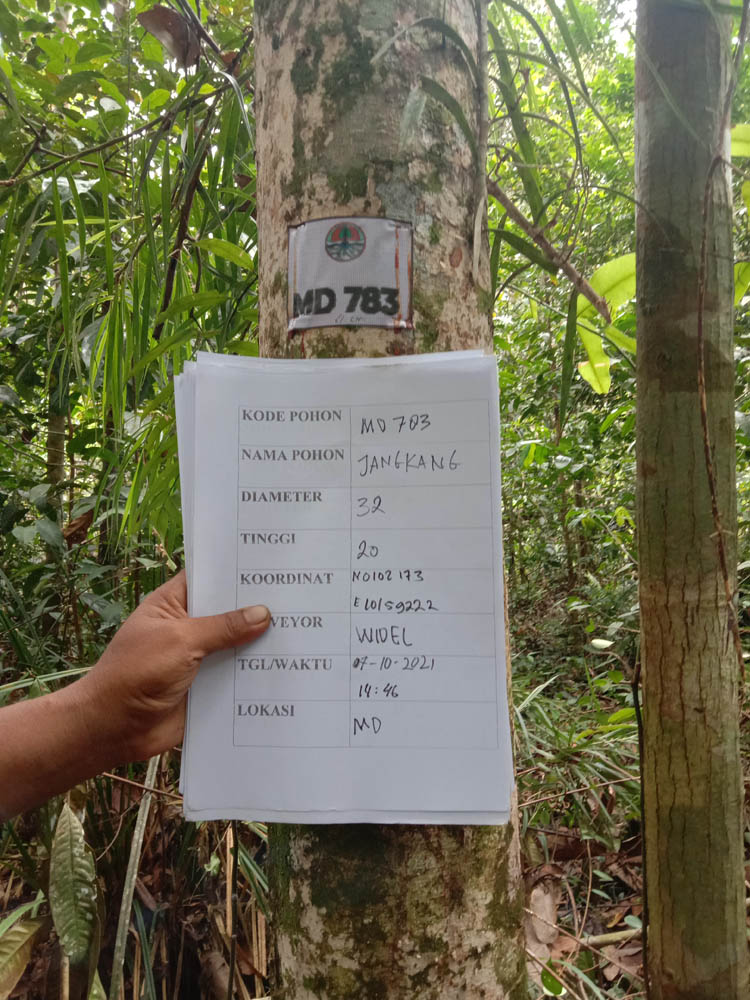 MD 783
KODE POHON MD 783
NAMA POHON JANGKANG
DIAMETER 32
TINGGI 20
KOORDINAT N0102 173
E10159222
VEYOR WIDEL
TGL/WAKTU 07-10-2021
14:46
LOKASI MD